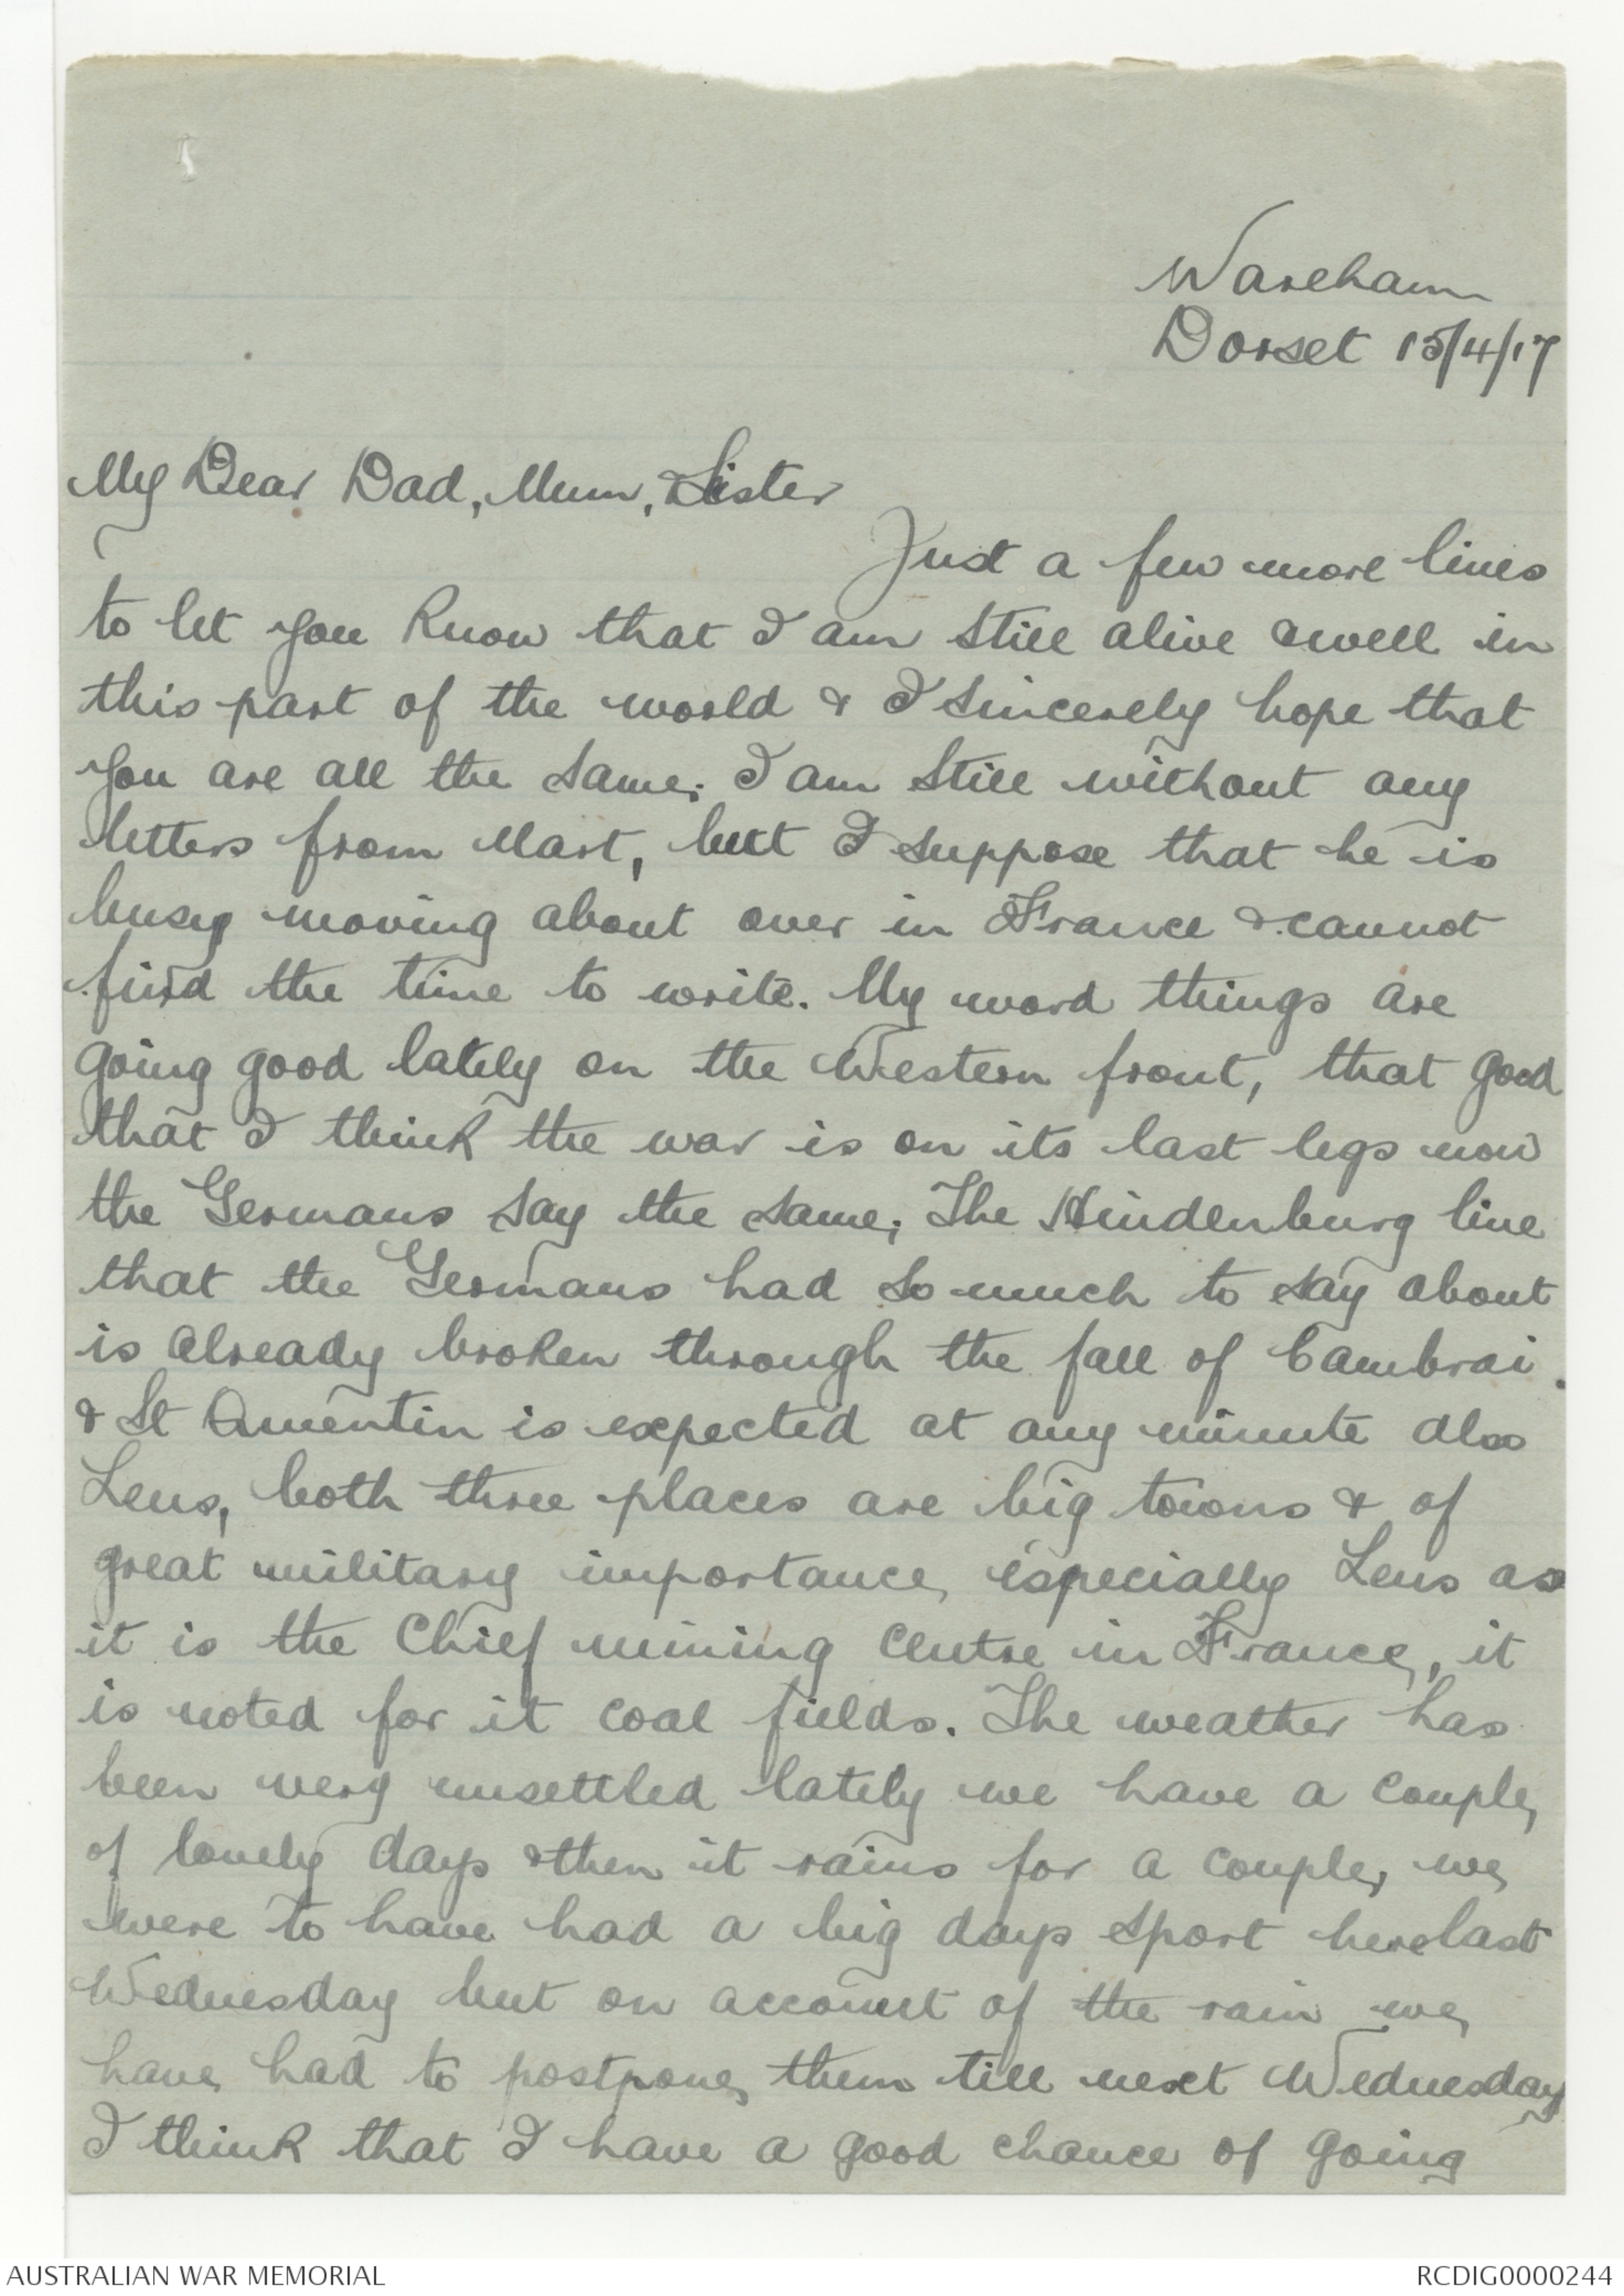 Wareham
Dorset 15/4/17
My Dear Dad, Mum, & Sister
Just a few more lines
to let you know that I am still alive & well in
this part of the world & I sincerely hope that
you are all the same. I am still without any
letters from Mart, but I suppose that he is
busy moving about over in France & cannot
find the time to write. My word things are
going good lately on the Western front, that good
that I think the war is on its last legs now
the Germans say the same. The Hindenburg line
that the Germans had so much to say about
is already broken through the fall of Cambrai
& St Quentin is expected at any minute also
Lens, both three places are big towns & of
great military importance, especially Lens as
it is the Chief mining centre in France, it
is noted for it coal fields. The weather has
been very unsettled lately we have a couple
of lovely days & then it rains for a couple, we
were to have had a big days sport here last
Wednesday but on account of the rain we
have had to postpone them till next Wednesday
I think that I have a good chance of going
AUSTRALIAN WAR MEMORIAL
RCDIG0000244